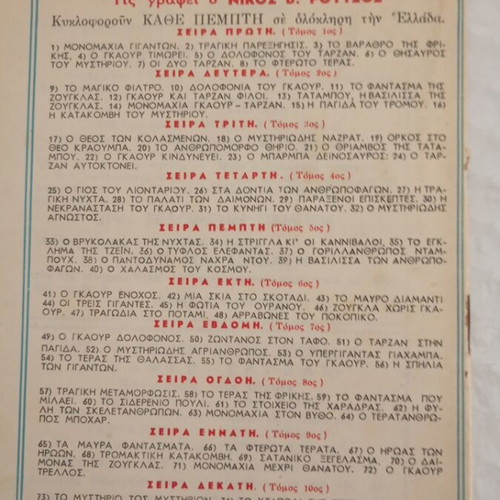 Τὶς γράφει ὁ ΝΙΚΟΣ Β. ΡΟΥΤΣΟΣ
Κυκλοφοροῦν ΚΑΘΕ ΠΕΜΠΤΗ σὲ ὁλόκληρη τὴν Ἑλλάδα.
ΣΕΙΡΑ ΠΡΩΤΗ. (Τόμος 1ος)
1) ΜΟΝΟΜΑΧΙΑ ΓΙΓΑΝΤΩΝ. 2) ΤΡΑΓΙΚΗ ΠΑΡΕΞΗΓΗΣΙΣ. 3) ΤΟ ΒΑΡΑΘΡΟ ΤΗΣ ΦΡΙ-
ΚΗΣ. 4) Ο ΓΚΑΟΥΡ ΤΙΜΩΡΕΙ. 5) Ο ΔΟΛΟΦΟΝΟΣ ΤΟΥ ΤΑΡΖΑΝ. 6) Ο ΘΗΣΑΥΡΟΣ
ΤΟΥ ΜΥΣΤΗΡΙΟΥ. 7) ΟΙ ΔΥΟ ΤΑΡΖΑΝ. 8) ΤΟ ΦΤΕΡΩΤΟ ΤΕΡΑΣ.
ΣΕΙΡΑ ΔΕΥΤΕΡΑ. (Τόμος 2ος)
9) ΤΟ ΜΑΓΙΚΟ ΦΙΛΤΡΟ. 10) ΔΟΛΟΦΟΝΙΑ ΤΟΥ ΓΚΑΟΥΡ. 11) ΤΟ ΦΑΝΤΑΣΜΑ ΤΗΣ
ΖΟΥΓΚΛΑΣ. 12) ΓΚΑΟΥΡ ΚΑΙ ΤΑΡΖΑΝ ΦΙΛΟΙ. 13) ΤΑΤΑΜΠΟΥ, Η ΒΑΣΙΛΙΣΣΑ ΤΗΣ
ΖΟΥΓΚΛΑΣ. 14) ΜΟΝΟΜΑΧΙΑ ΓΚΑΟΥΡ — ΤΑΡΖΑΝ. 15) Η ΠΑΓΙΔΑ ΤΟΥ ΤΡΟΜΟΥ. 16)
Η ΚΑΤΑΚΟΜΒΗ ΤΟΥ ΜΥΣΤΗΡΙΟΥ.
ΣΕΙΡΑ ΤΡΙΤΗ. (Τόμος 3ος)
17) Ο ΘΕΟΣ ΤΩΝ ΚΟΛΑΣΜΕΝΩΝ. 18) Ο ΜΥΣΤΗΡΙΩΔΗΣ ΝΑΖΡΑΤ. 19) ΟΡΚΟΣ ΣΤΟ
ΘΕΟ ΚΡΑΟΥΜΠΑ. 20) ΤΟ ΑΝΘΡΩΠΟΜΟΡΦΟ ΘΗΡΙΟ. 21) Ο ΘΡΙΑΜΒΟΣ ΤΗΣ ΤΑΤΑ-
ΜΠΟΥ. 22) Ο ΓΚΑΟΥΡ ΚΙΝΔΥΝΕΥΕΙ. 23) Ο ΜΠΑΡΜΠΑ ΔΕΙΝΟΣΑΥΡΟΣ: 24) Ο ΤΑΡ-
ΖΑΝ ΑΥΤΟΚΤΟΝΕΙ.
ΣΕΙΡΑ ΤΕΤΑΡΤΗ. (Τόμος 4ος)
25) Ο ΓΙΟΣ ΤΟΥ ΛΙΟΝΤΑΡΙΟΥ. 26) ΣΤΑ ΔΟΝΤΙΑ ΤΩΝ ΑΝΘΡΩΠΟΦΑΓΩΝ. 27) Η ΤΡΑ-
ΓΙΚΗ ΝΥΧΤΑ. 28) ΤΟ ΠΑΛΑΤΙ ΤΩΝ ΔΑΙΜΟΝΩΝ. 29) ΠΑΡΑΞΕΝΟΙ ΕΠΙΣΚΕΠΤΕΣ. 30) Η
ΝΕΚΡΑΝΑΣΤΑΣΗ ΤΟΥ ΓΚΑΟΥΡ. 31) ΤΟ ΚΥΝΗΓΙ ΤΟΥ ΘΑΝΑΤΟΥ. 32) Ο ΜΥΣΤΗΡΙΩΔΗΣ
ΑΓΝΩΣΤΟΣ.
ΣΕΙΡΑ ΠΕΜΠΤΗ (Τόμος 5ος)
33) Ο ΒΡΥΚΟΛΑΚΑΣ ΤΗΣ ΝΥΧΤΑΣ. 34) Η ΣΤΡΙΓΓΛΑ ΚΙ' ΟΙ ΚΑΝΝΙΒΑΛΟΙ. 35) ΤΟ ΕΓΚ-
ΛΗΜΑ ΤΗΣ ΤΖΕΪΝ. 36) Ο ΤΥΦΛΟΣ ΕΛΕΦΑΝΤΑΣ. 37) Ο ΓΟΡΙΛΛΑΝΘΡΩΠΟΣ ΝΤΑΜ-
ΠΟΥΧ. 38) Ο ΠΑΝΤΟΔΥΝΑΜΟΣ ΝΑΧΡΑ ΝΤΟΥ. 39) Η ΒΑΣΙΛΙΣΣΑ ΤΩΝ ΑΝΘΡΩΠΟ-
ΦΑΓΩΝ. 40) Ο ΧΑΛΑΣΜΟΣ ΤΟΥ ΚΟΣΜΟΥ.
ΣΕΙΡΑ ΕΚΤΗ. (Τόμος 6ος)
41) Ο ΓΚΑΟΥΡ ΕΝΟΧΟΣ. 42) ΜΙΑ ΣΚΙΑ ΣΤΟ ΣΚΟΤΑΔΙ. 43) ΤΟ ΜΑΥΡΟ ΔΙΑΜΑΝΤΙ
44) ΟΙ ΤΡΕΙΣ ΓΙΓΑΝΤΕΣ. 45) Η ΦΩΤΙΑ ΤΟΥ ΟΥΡΑΝΟΥ. 46) ΖΟΥΓΚΛΑ ΧΩΡΙΣ ΓΚΑ-
ΟΥΡ. 47) ΤΡΑΓΩΔΙΑ ΣΤΟ ΠΟΤΑΜΙ. 48) ΑΡΡΑΒΩΝΕΣ ΤΟΥ ΠΟΚΟΠΙΚΟ.
ΣΕΙΡΑ ΕΒΔΟΜΗ. (Τόμος 7ος)
49) Ο ΓΚΑΟΥΡ ΔΟΛΟΦΟΝΟΣ. 50) ΖΩΝΤΑΝΟΣ ΣΤΟΝ ΤΑΦΟ. 51) Ο ΤΑΡΖΑΝ ΣΤΗΝ
ΠΑΓΙΔΑ. 52) Ο ΜΥΣΤΗΡΙΩΔΗΣ ΑΓΡΙΑΝΘΡΩΠΟΣ. 53) Ο ΥΠΕΡΓΙΓΑΝΤΑΣ ΓΙΑΧΑΜΠΑ.
54) ΤΟ ΤΕΡΑΣ ΤΗΣ ΘΑΛΑΣΣΑΣ. 55) ΤΟ ΦΑΝΤΑΣΜΑ ΤΟΥ ΓΚΑΟΥΡ. 56) Η ΣΠΗΛΙΑ
ΤΩΝ ΓΙΓΑΝΤΩΝ.
ΣΕΙΡΑ ΟΓΔΟΗ. (Τόμος 8ος)
57) ΤΡΑΓΙΚΗ ΜΕΤΑΜΟΡΦΩΣΙΣ. 58) ΤΟ ΤΕΡΑΣ ΤΗΣ ΦΡΙΚΗΣ. 59) ΤΟ ΦΑΝΤΑΣΜΑ ΠΟΥ
ΜΙΛΑΕΙ. 60) ΤΟ ΣΙΔΕΡΕΝΙΟ ΠΟΥΛΙ. 61) ΤΟ ΣΤΟΙΧΕΙΟ ΤΗΣ ΧΑΡΑΔΡΑΣ. 62) Η ΦΥ-
ΛΗ ΤΩΝ ΣΚΕΛΕΤΑΝΘΡΩΠΩΝ. 63) ΜΟΝΟΜΑΧΙΑ ΣΤΟΝ ΒΥΘΟ. 64) Ο ΤΕΡΑΤΑΝΘΡΩ-
ΠΟΣ ΜΠΟΧΑΡ.
ΣΕΙΡΑ ΕΝΝΑΤΗ. (Τόμος 9ος)
65) ΤΑ ΜΑΥΡΑ ΦΑΝΤΑΣΜΑΤΑ. 66) ΤΑ ΦΤΕΡΩΤΑ ΤΕΡΑΤΑ. 67) Ο ΗΡΩΑΣ ΤΩΝ
ΗΡΩΩΝ. 68) ΤΡΟΜΑΚΤΙΚΗ ΚΑΤΑΚΟΜΒΗ. 69) ΣΑΤΑΝΙΚΟ ΞΕΓΕΛΑΣΜΑ. 70) Ο ΔΑΙ-
ΜΟΝΑΣ ΤΗΣ ΖΟΥΓΚΛΑΣ. 71) ΜΟΝΟΜΑΧΙΑ ΜΕΧΡΙ ΘΑΝΑΤΟΥ. 72) Ο ΓΚΑΟΥΡ
ΤΡΕΛΛΟΣ.
ΣΕΙΡΑ ΔΕΚΑΤΗ. (Τόμος 10ος)
73) ΤΟ ΜΥΣΤΗΡΙΟ ΤΩΝ ΜΥΣΤΗΡΙΩΝ. 74)